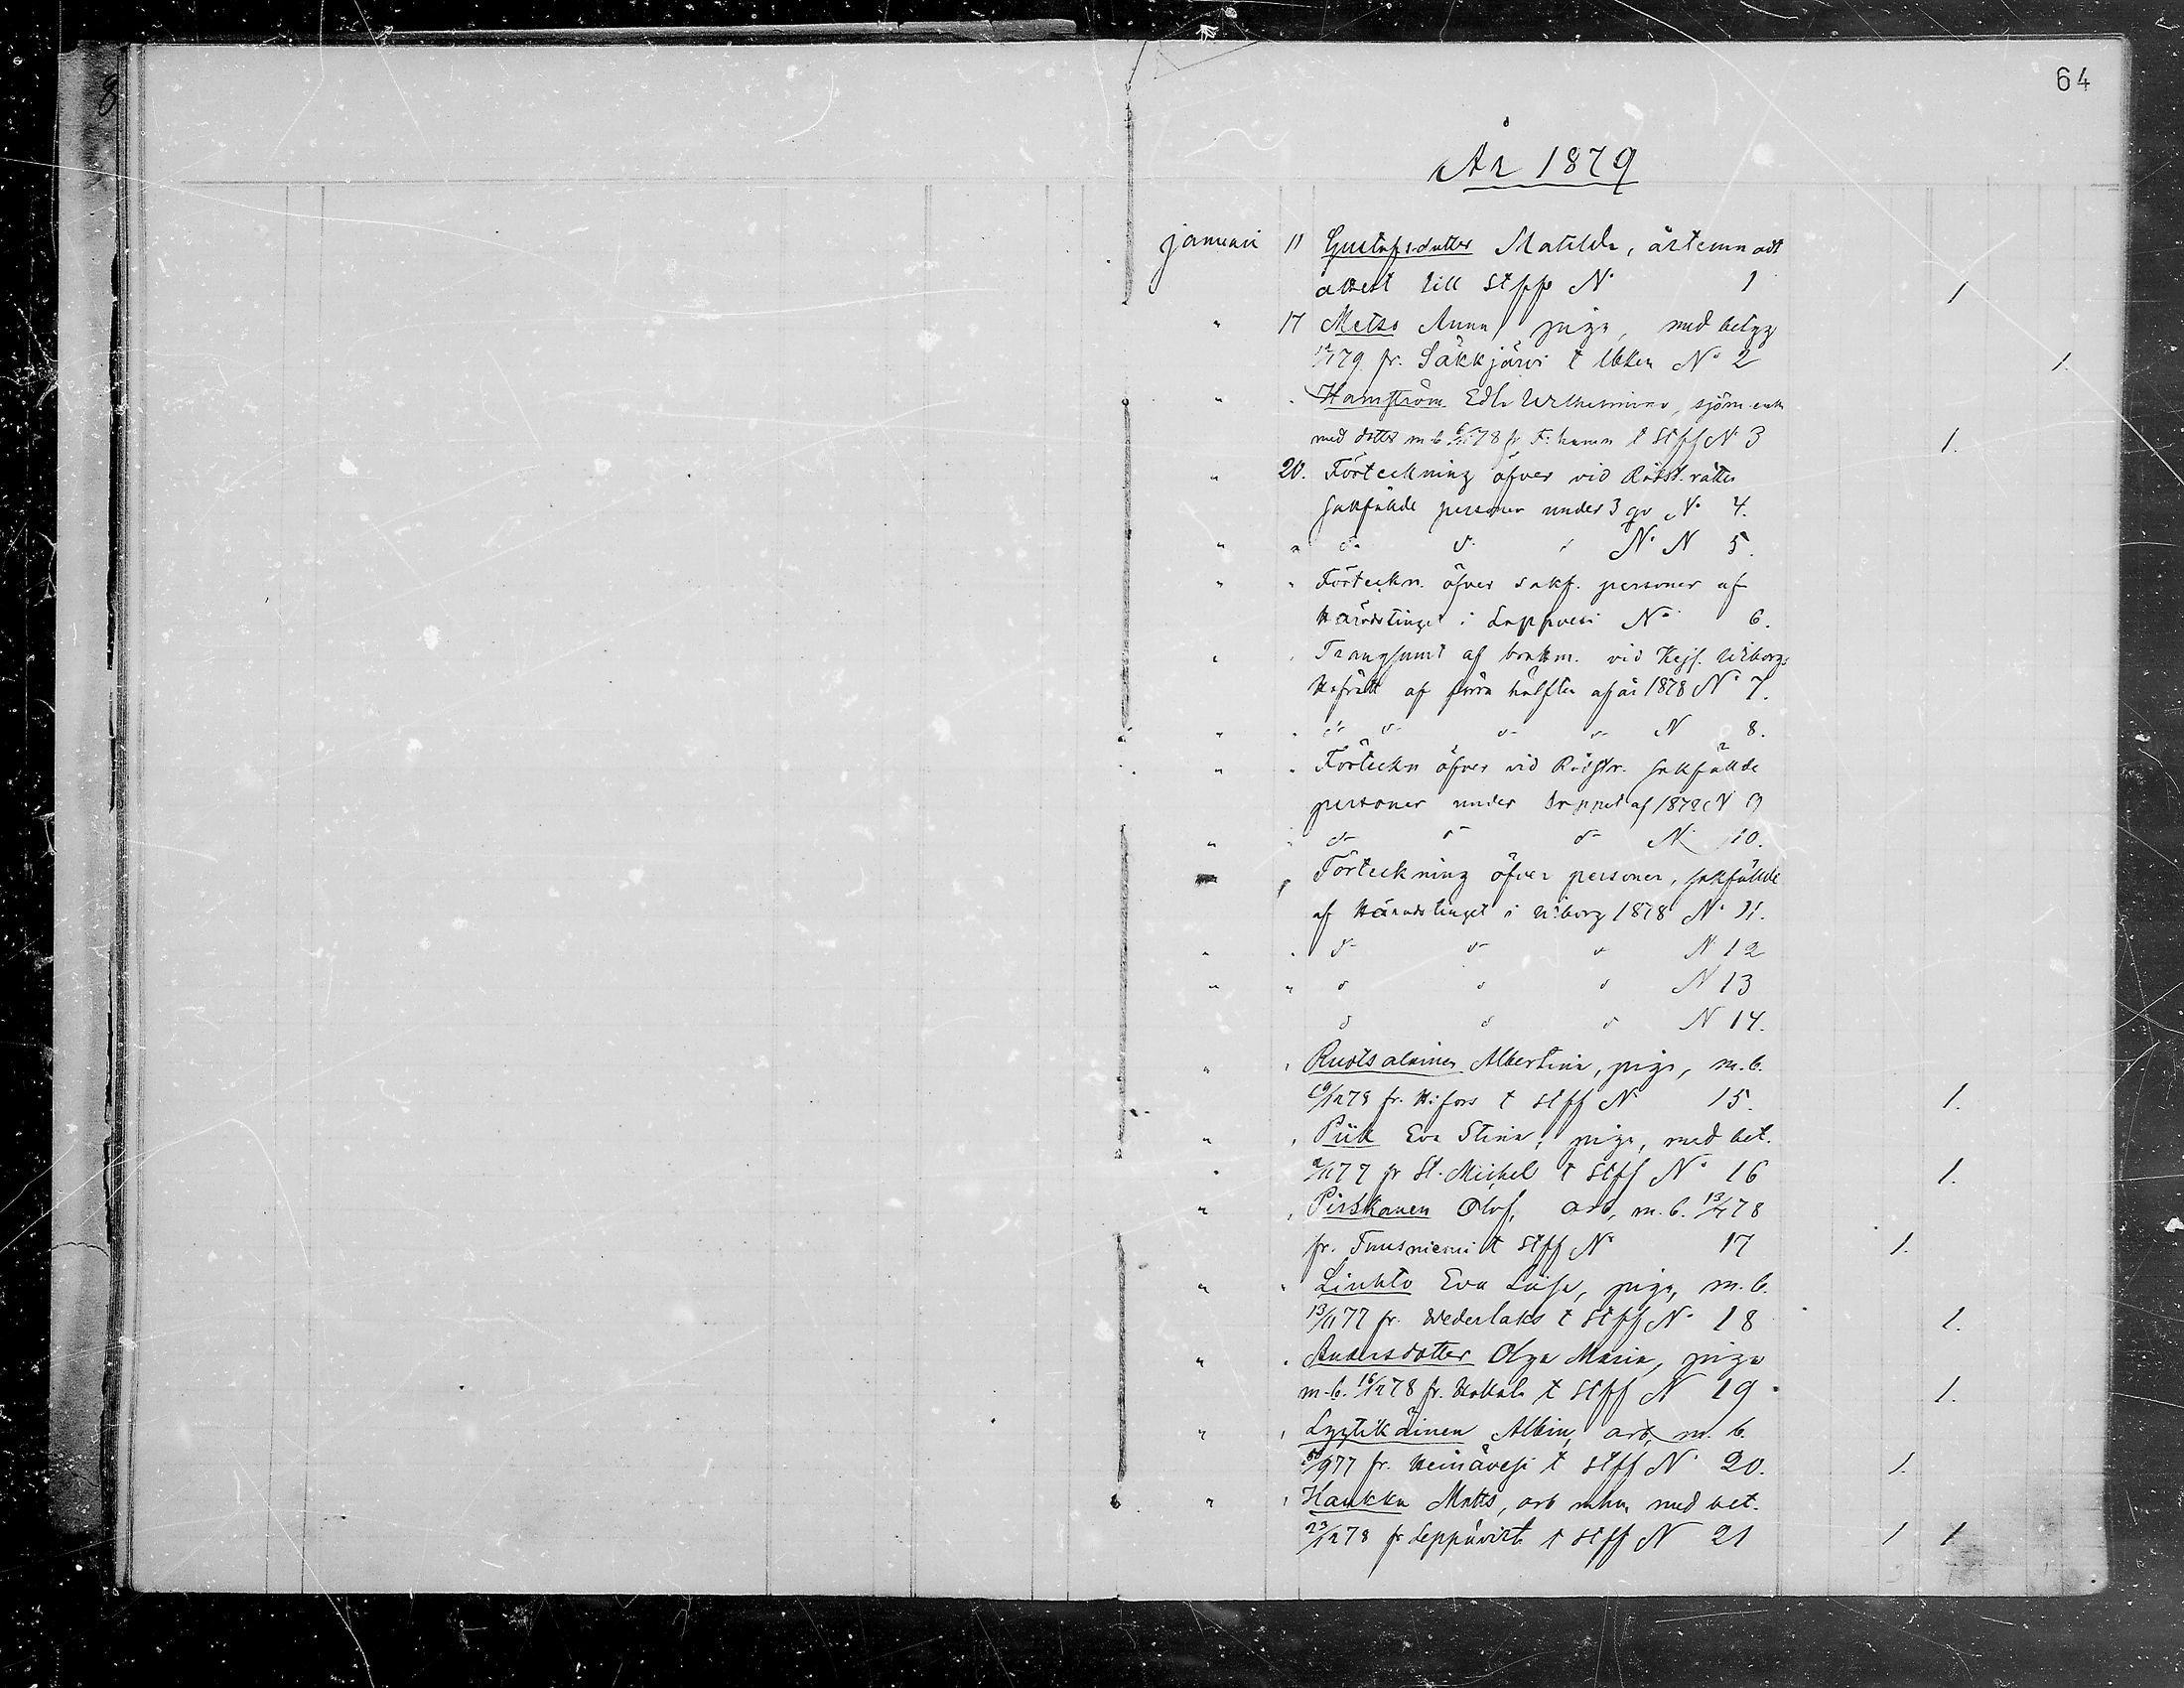 64
8
År 1879
januari 11 Gustafsdotter Matilda,
attest till Stff N° 1 1
" 17 Metso Anna, piga, med betyg
1/1 79 fr. Säkkjärvi t N° 2 1.
" " Hamström Edla Wilhelmina, sjöm. enk
med dotter m b 78 fr F:hamn t Stff N° 3 1.
" 20. Förteckning öfver vid Rådst. rätten
sakfälde personer under 3 qv N° 4.
" " d° d° d° N° N 5.
" " Förteckn. öfver sakf. personer af
Häradstinget i Lappvesi N° 6.
" " Transsumt af vid Kejs. Wiborgs
Hofrätt af förra hälften af år 1878 N° 7.
" " d° d° d° d° N 8.
" " Förteckn öfver vid Rådstr. sakfälde
personer under loppet af 1878 N 9
" " d° d° d° N 10.
" Förteckning öfver personer, sakfälde
af Häradstinget i Wiborg 1878 N° 11.
" " d° d° d° N 12
" " d° d° d° N 13
d° d° d° N 14.
" " Ruotsalainen Albertina, piga, m. b.
/12 78 fr. H:fors t Stff N 15. 1.
" " Piik Eva Stina, piga, med bet.
/11 77 fr St. Michel t Stff N° 16 1.
" " Pirskanen Olof, arb, m. b. 13/ 78
fr. Tuusniemi t Stff N° 17 1.
" " Liukko Eva Lisa, piga, m. b.
13/11 77 fr. Wederlaks t Stff N° 18 1.
" " Andersdotter Olga Maria, piga
m. b. 16/12 78 fr. t Stff N 19. 1.
" " Lyytikäinen Albin, arb, m. b.
/9 77 fr. Heinävesi t Stff N° 20. 1.
" " Haukka Matts, arb med bet.
23/12 78 fr Leppävirta t Stff N 21 1 1